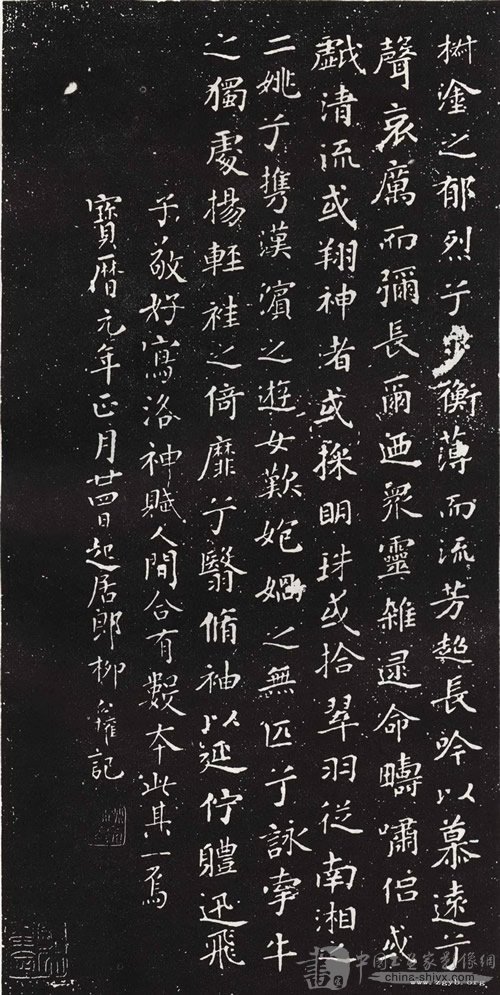 椒塗之郁烈兮步衡薄而流芳超長吟以慕遠兮
聲哀厲而彌長爾迺眾靈雜遝命疇嘯侶或
戲清流或翔神渚或採明珠或拾翠羽從南湘之
二姚兮攜漢濱之遊女歎匏媧之無匹兮詠牽牛
之獨處揚輕袿之倚靡兮翳脩袖以延佇體迅飛
子敬好寫洛神賦人間合有數本此其一焉
寶曆元年正月廿四日起居郎柳公權記
中国书画家影像网
www.zgyb.org